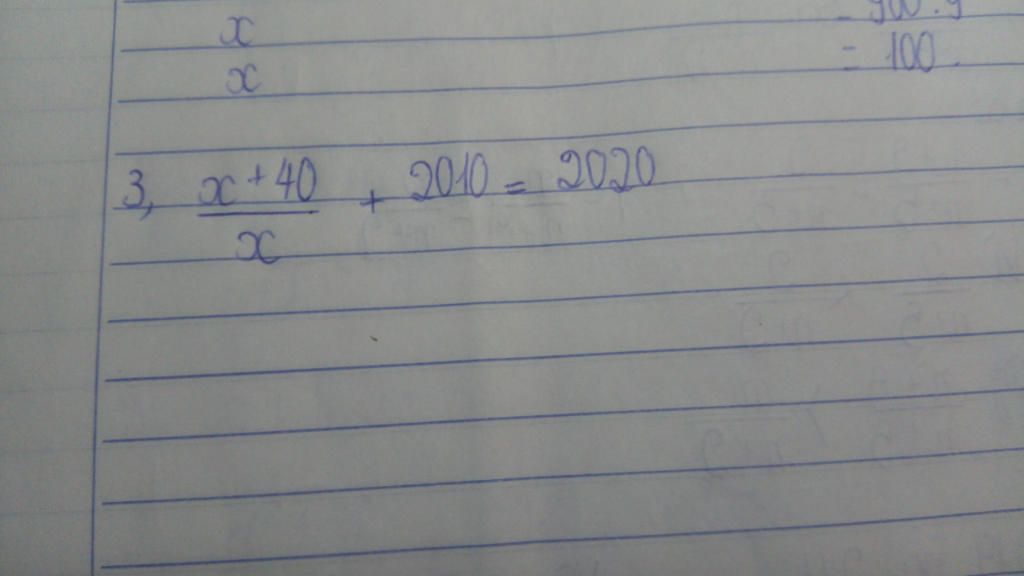 x
x = 100.
3, x + 40 / x + 2010 = 2020